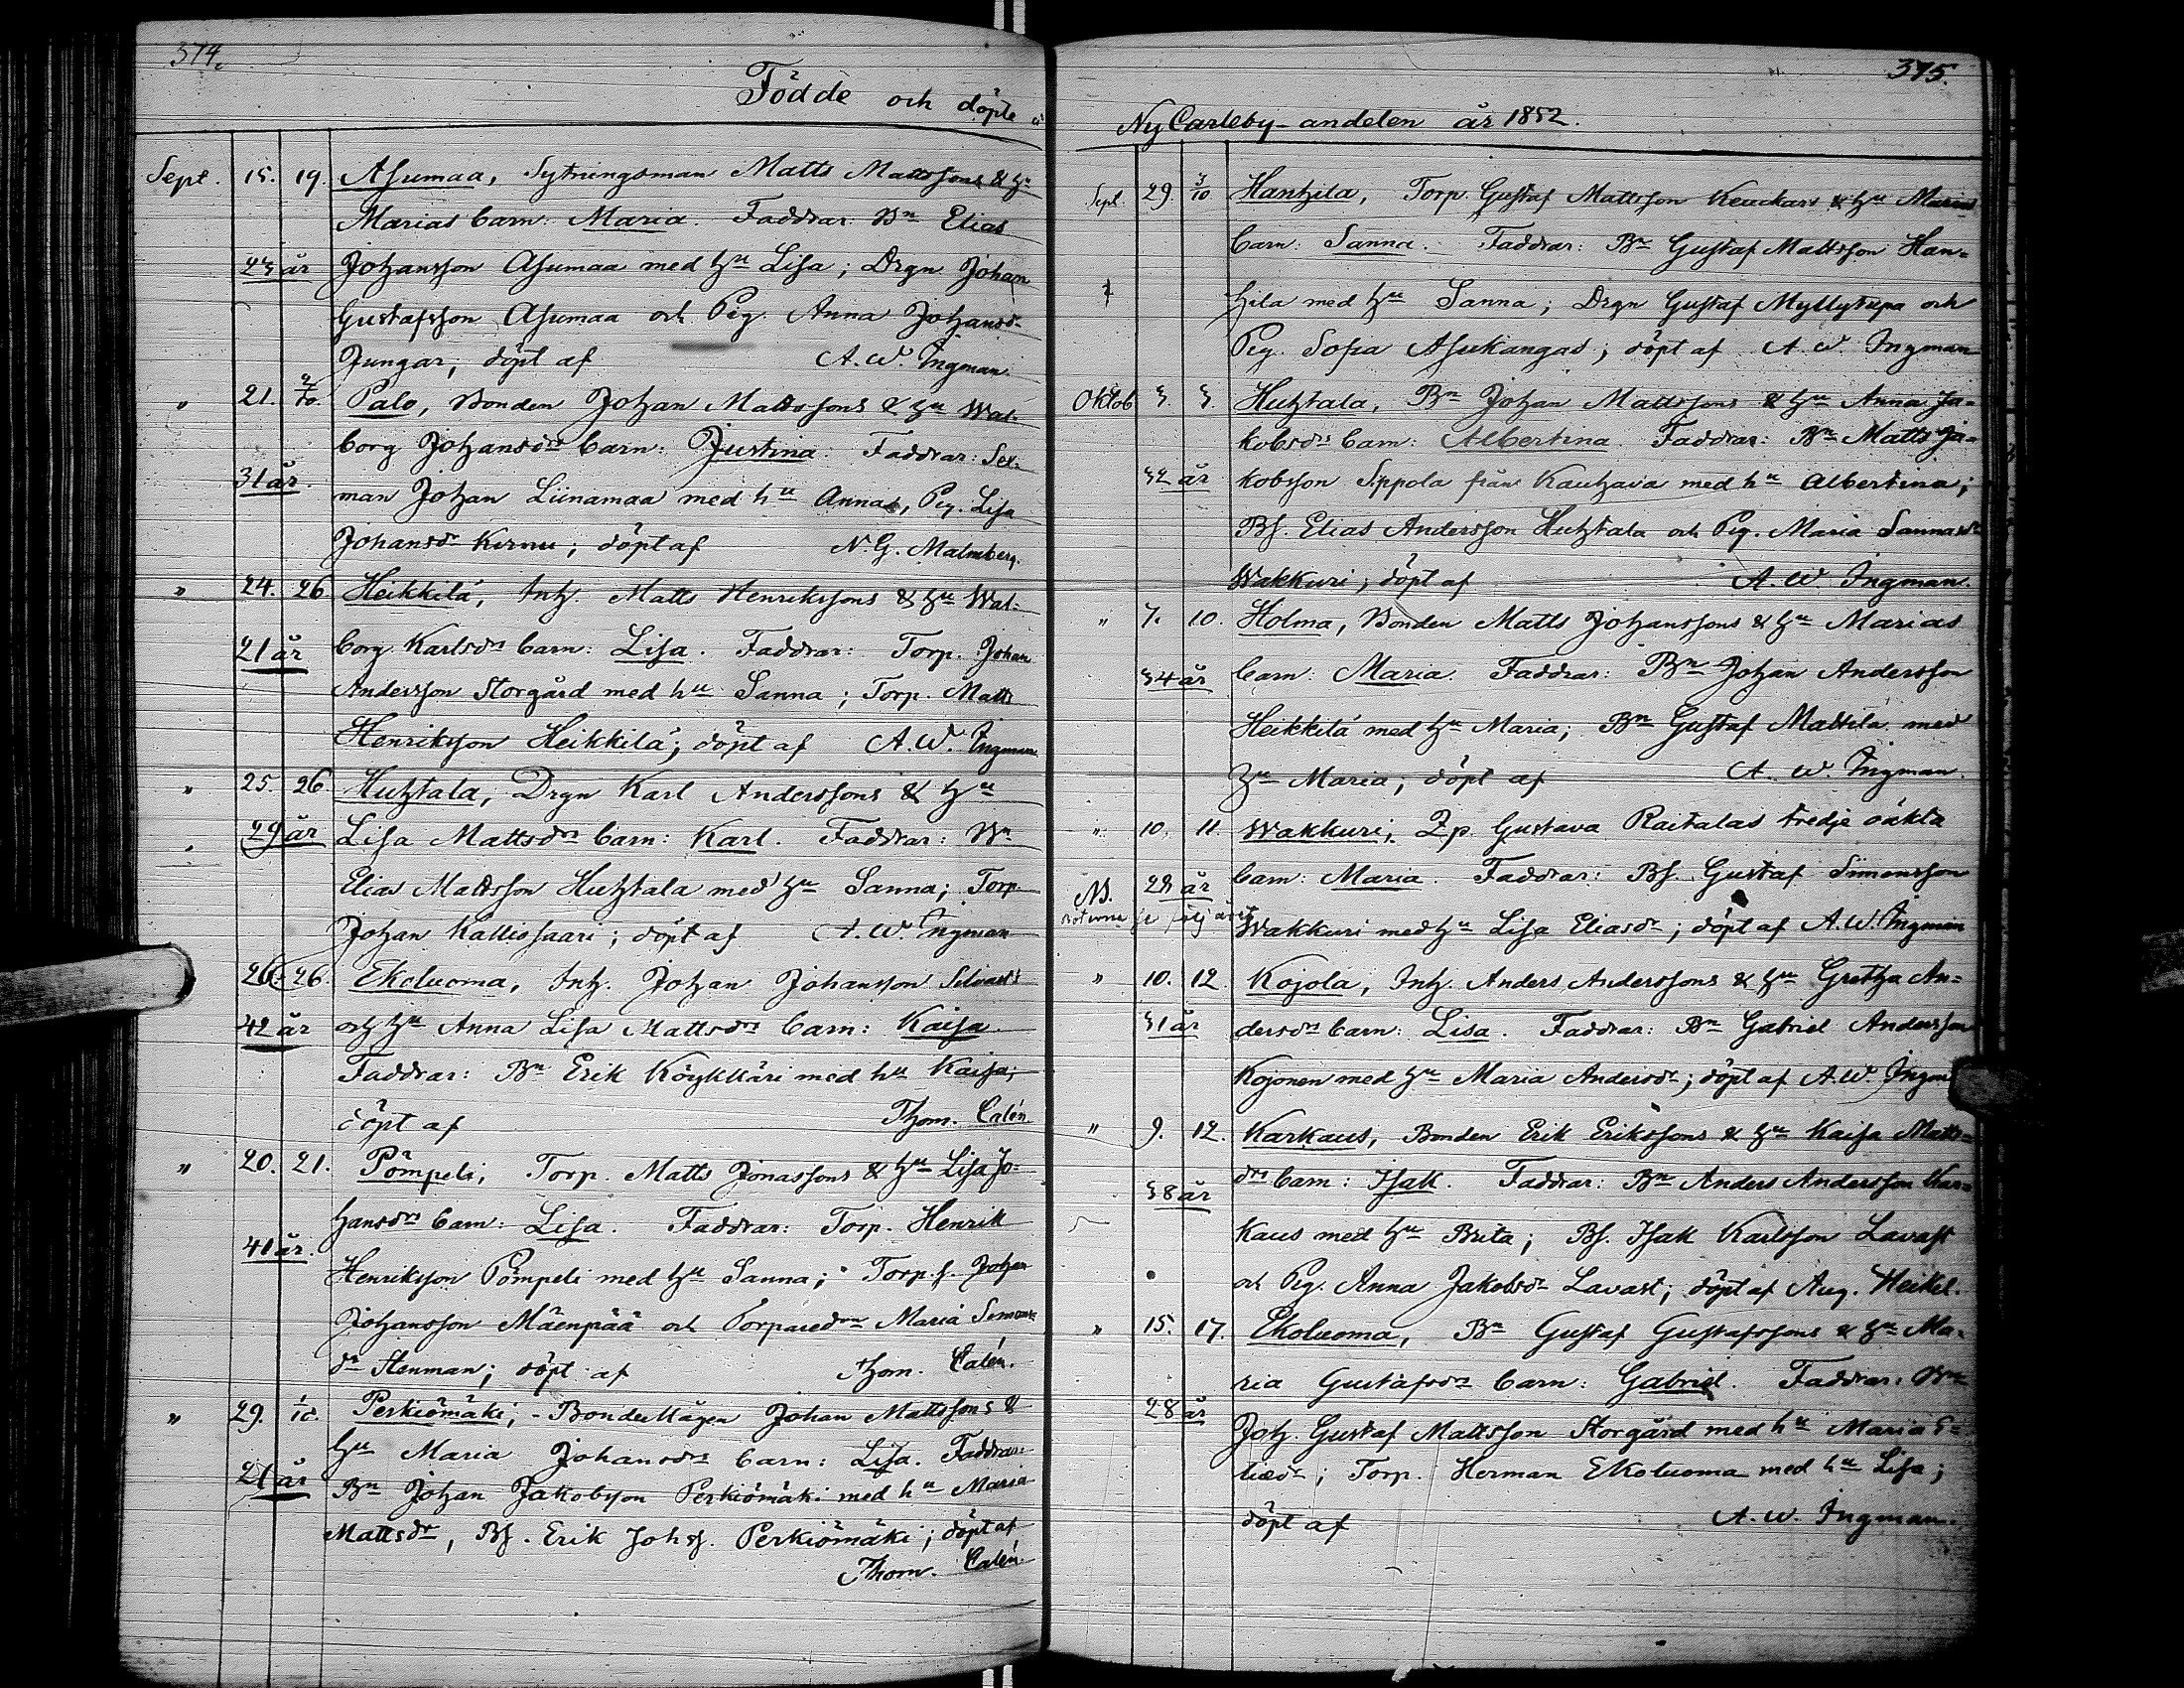 374.
Födde och döpte i
Sept. 15. 19. Asumaa, Sytningsman Matts Mattssons & hu
Marias barn: Maria. Faddrar: Bn Elias
23 år Johansson Asumaa med hu Lisa; Drgn Johan
Gustafsson Asumaa och Pig. Anna Johansdr
Jungar; döpt af A. W. Ingman.
" 21. 2/10. Palo, Bonden Johan Mattssons & hu Wal-
borg Johansdrs barn: Justina. Faddrar: Sex-
31 år. man Johan Liinamaa med hu Anna, Pig. Lisa
Johansdr; döpt af N. G. Malmberg.
" 24. 26 Heikkilä, Inh. Matts Henrikssons & hu Wal-
21 år borg Karlsdrs barn: Lisa. Faddrar: Torp. Johan
Andersson Storgård med hu Sanna; Torp. Matts
Henriksson Heikkilä; döpt af A. W. Ingman
" 25. 26. Huhtala, Drgn Karl Anderssons & hu
29 år Lisa Mattsdrs barn: Karl. Faddrar: Bn
Elias Mattsson Huhtala med hu Sanna; Torp.
Johan Kalliosaari; döpt af A. W. Ingman
26. 26. Ekoluoma, Inh. Johan Johansson
42 år och hu Anna Lisa Mattsdrs barn: Kaisa.
Faddrar: Bn Erik Köykkäri med hu Kaisa;
döpt af Thom. Calén.
" 20. 21. Pömpeli, Torp. Matts Jonassons & hu Lisa Jo-
hansdrs barn: Lisa. Faddrar: Torp. Henrik
41 år. Henriksson Pömpeli med hu Sanna; Torp.s. Johan
Johansson Mäenpää och Torparedrn Maria Simons-
dr Stenman; döpt af Thom. Calén.
" 29. 1/10. Perkiömäki, Bondemågen Johan Mattssons &
hu Maria Johansdrs barn: Lisa. Faddrar:
21 år Bn Johan Jakobsson Perkiömäki med hu Maria
Mattsdr, Bs. Erik Johss. Perkiömäki; döpt af
Thom. Calén.
375.
NyCarleby-andelen år 1852.
Sept. 29. 3/10 Hanhila, Torp. Gustaf Mattsson Keuckars & hu Marias
barn: Sanna. Faddrar: Bn Gustaf Mattsson Han-
hila med hu Sanna; Drgn Gustaf Myllytupa och
Pig. Sofia Asukangas; döpt af A. W. Ingman
Oktob 3. 3. Huhtala, Bn Johan Mattssons & hu Anna Ja-
kobsdrs barn: Albertina. Faddrar: Bn Matts Ja-
32 år kobsson Sippola från Kauhava med hu Albertina;
Bs. Elias Andersson Huhtala och Pig. Maria Sannasdr
Wakkuri; döpt af A. W. Ingman.
" 7. 10. Holma, Bonden Matts Johanssons & hu Marias
34 år barn: Maria. Faddrar: Bn Johan Andersson
Heikkilä med hu Maria; Bn Gustaf Mattila med
hu Maria; döpt af A. W. Ingman.
" 10. 11. Wakkuri, Qp. Gustava Raitalas tredje oäkta
NB. 28 år barn: Maria. Faddrar: Bs. Gustaf Simonsson
Wakkuri med hu Lisa Eliasdr; döpt af A. W. Ingman
" 10. 12. Kojola, Inh. Anders Anderssons & hu Gretha An-
31 år dersdrs barn: Lisa. Faddrar: Bn Gabriel Andersson
Kojonen med hu Maria Andersdr; döpt af A. W. Ingman
" 9. 12. Karkaus, Bonden Erik Erikssons & hu Kaisa Matts-
38 år drs barn: Isak. Faddrar: Bn Anders Andersson Kar-
kaus med hu Brita; Bs. Isak Karlsson Lavast
och Pig. Anna Jakobsdr Lavast; döpt af Aug. Heikel.
" 15. 17. Ekoluoma, Bn Gustaf Gustafssons & hu Ma-
ria Gustafsdrs barn: Gabriel. Faddrar: Bn
28 år Joh. Gustaf Mattsson Storgård med hu Maria E-
liedr; Torp. Herman Ekoluoma med hu Lisa;
döpt af A. W. Ingman.